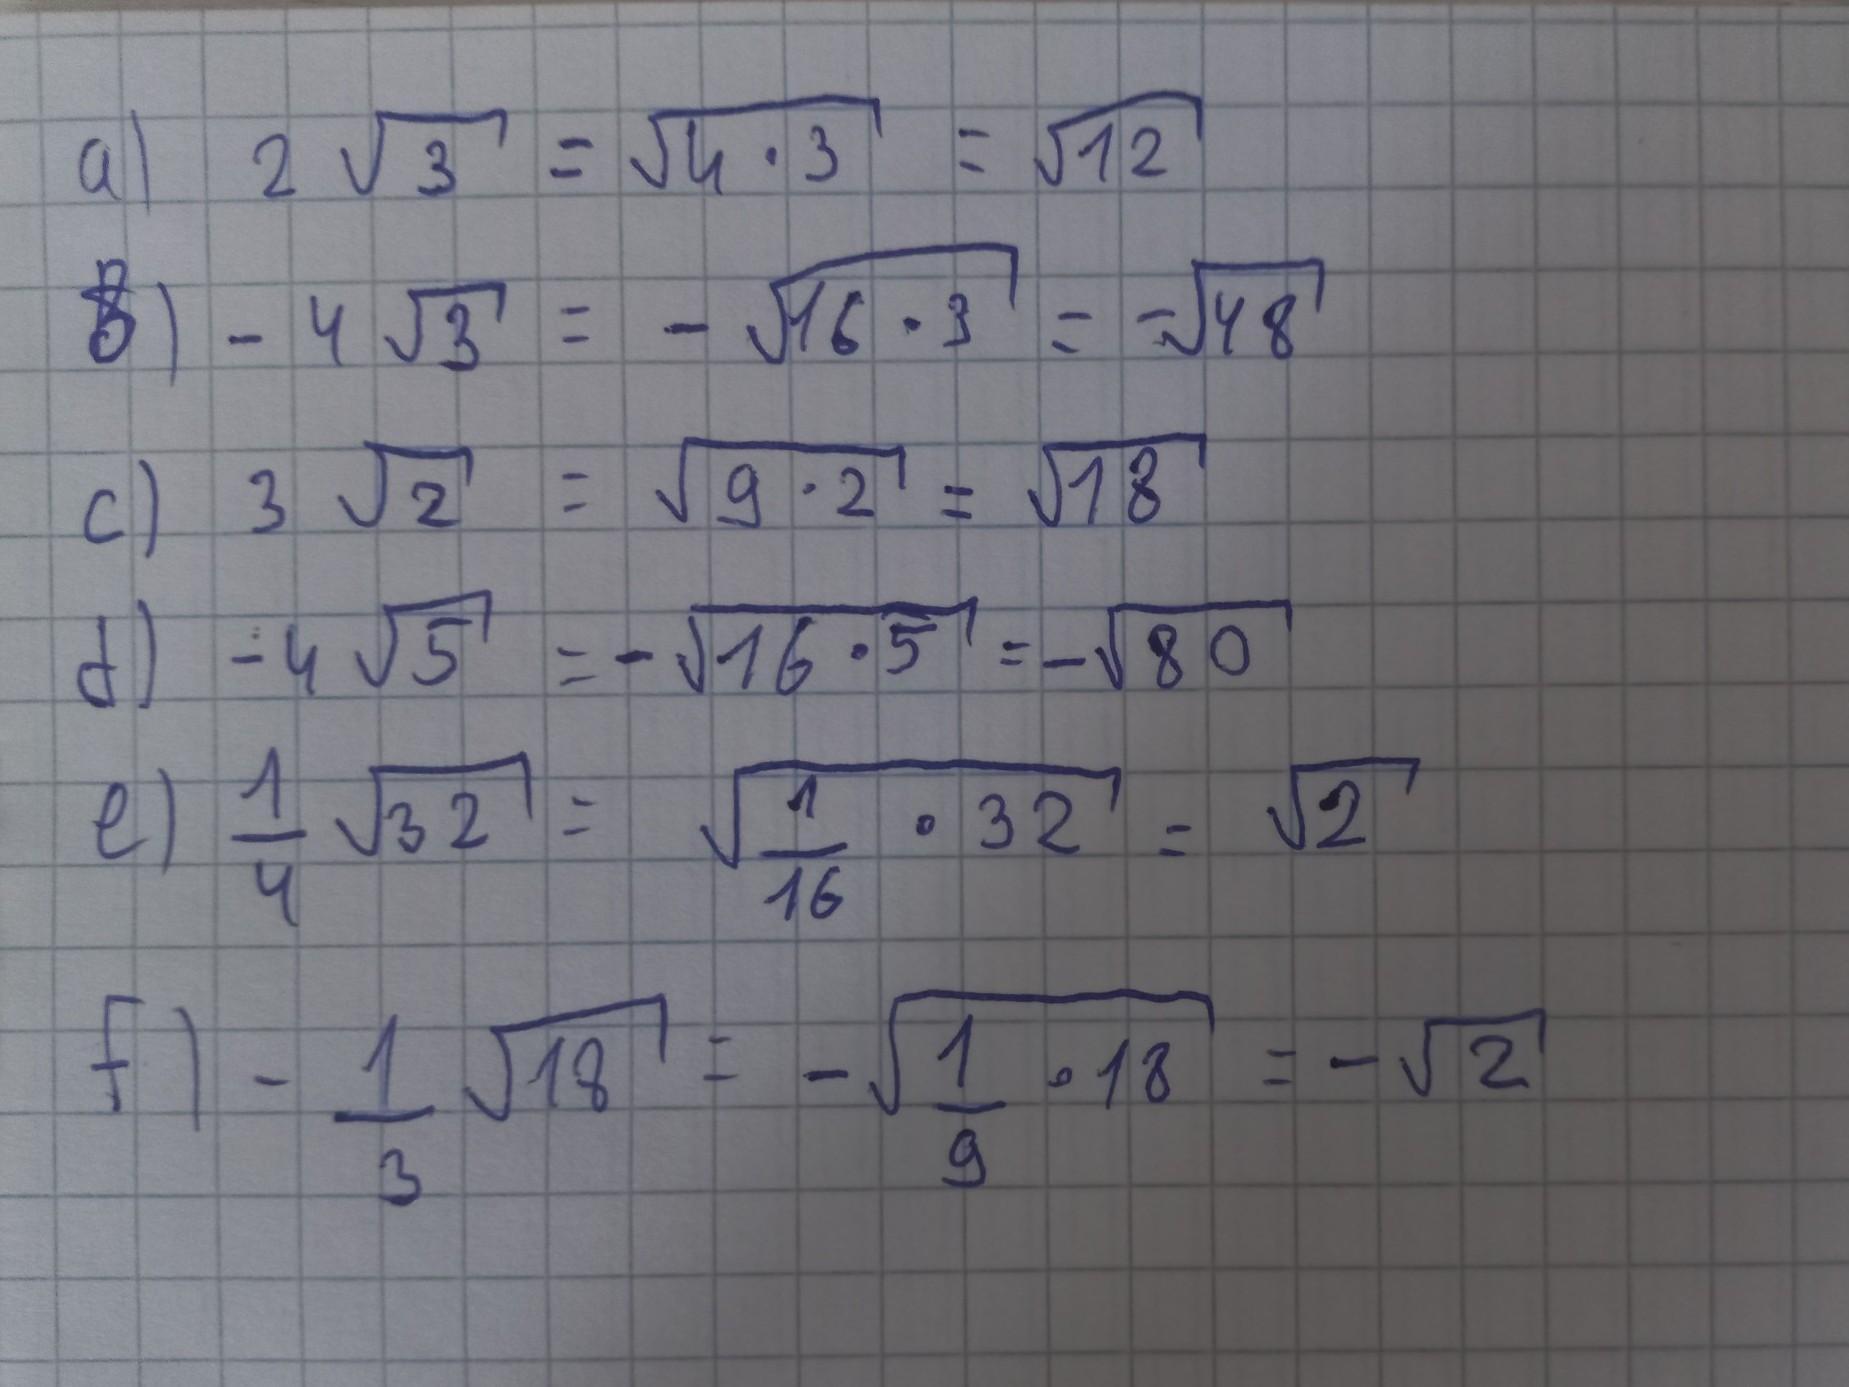 a) 2√3 = √(4·3) = √12
б) -4√3 = -√(16·3) = -√48
c) 3√2 = √(9·2) = √18
d) -4√5 = -√(16·5) = -√80
e) 1/4 √32 = √(1/16 · 32) = √2
f) -1/3 √18 = -√(1/9 · 18) = -√2